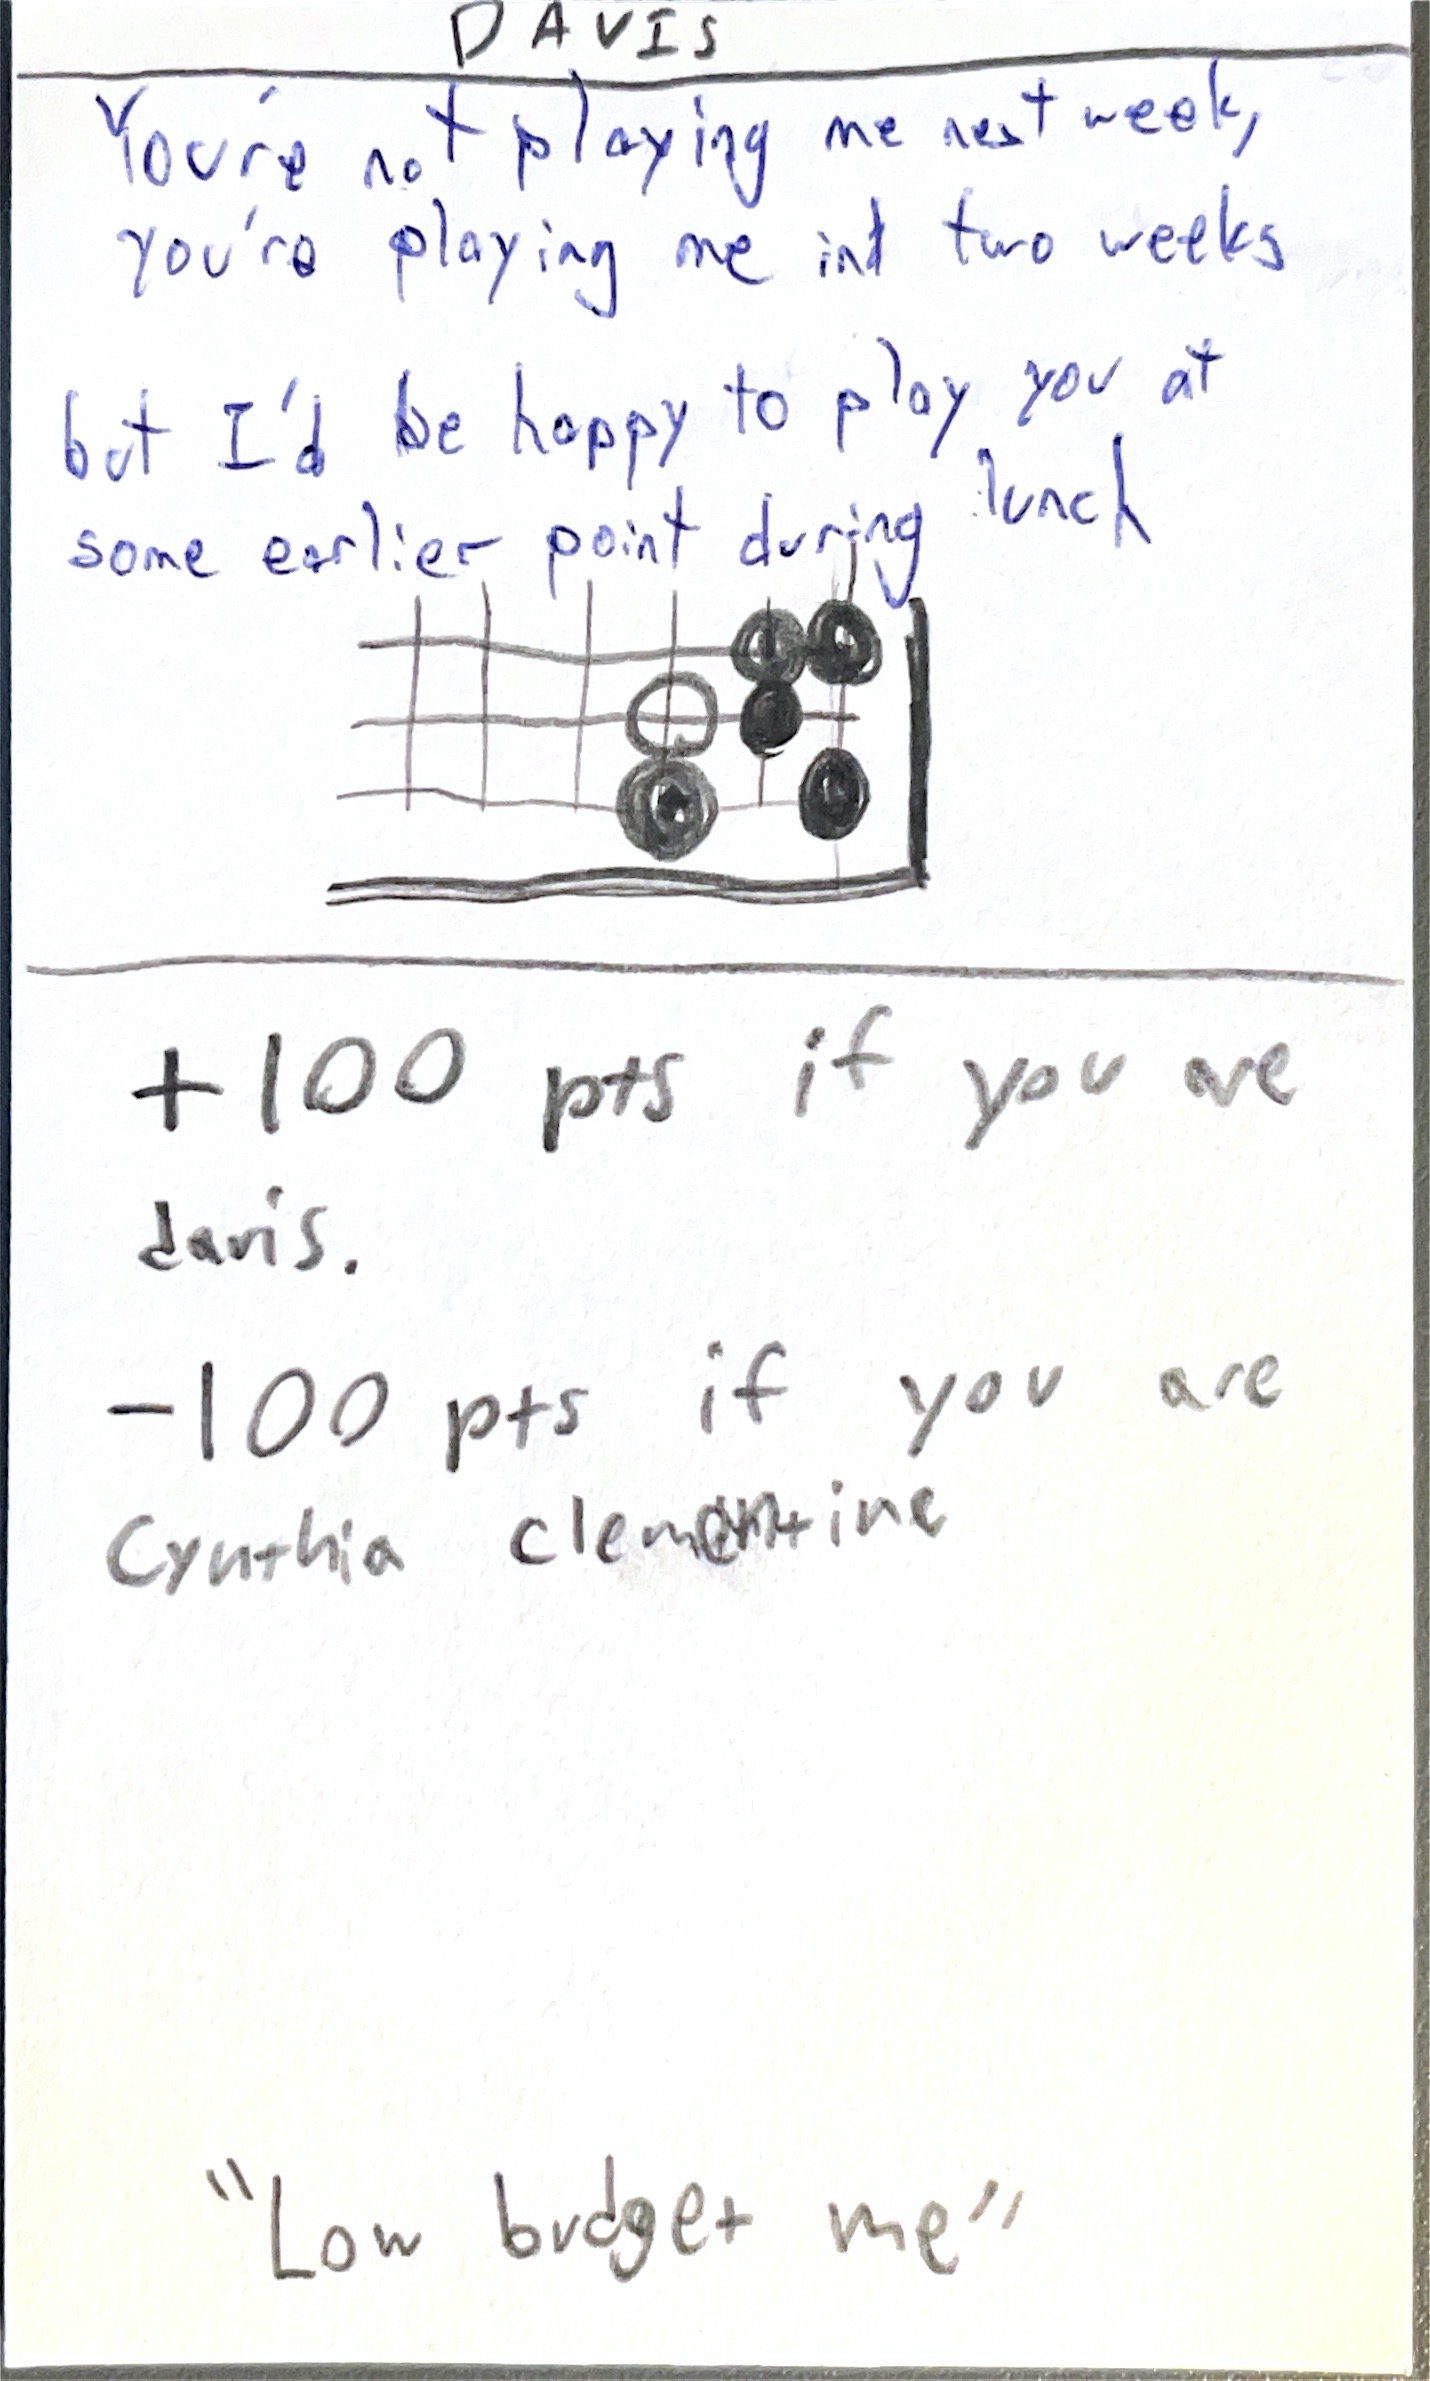 DAVIS
You're not playing me next week,
you're playing me int two weeks
but I'd be happy to play you at
some earlier point during lunch
+100 pts if you are
davis.
-100 pts if you are
Cynthia clementine
"Low budget me"